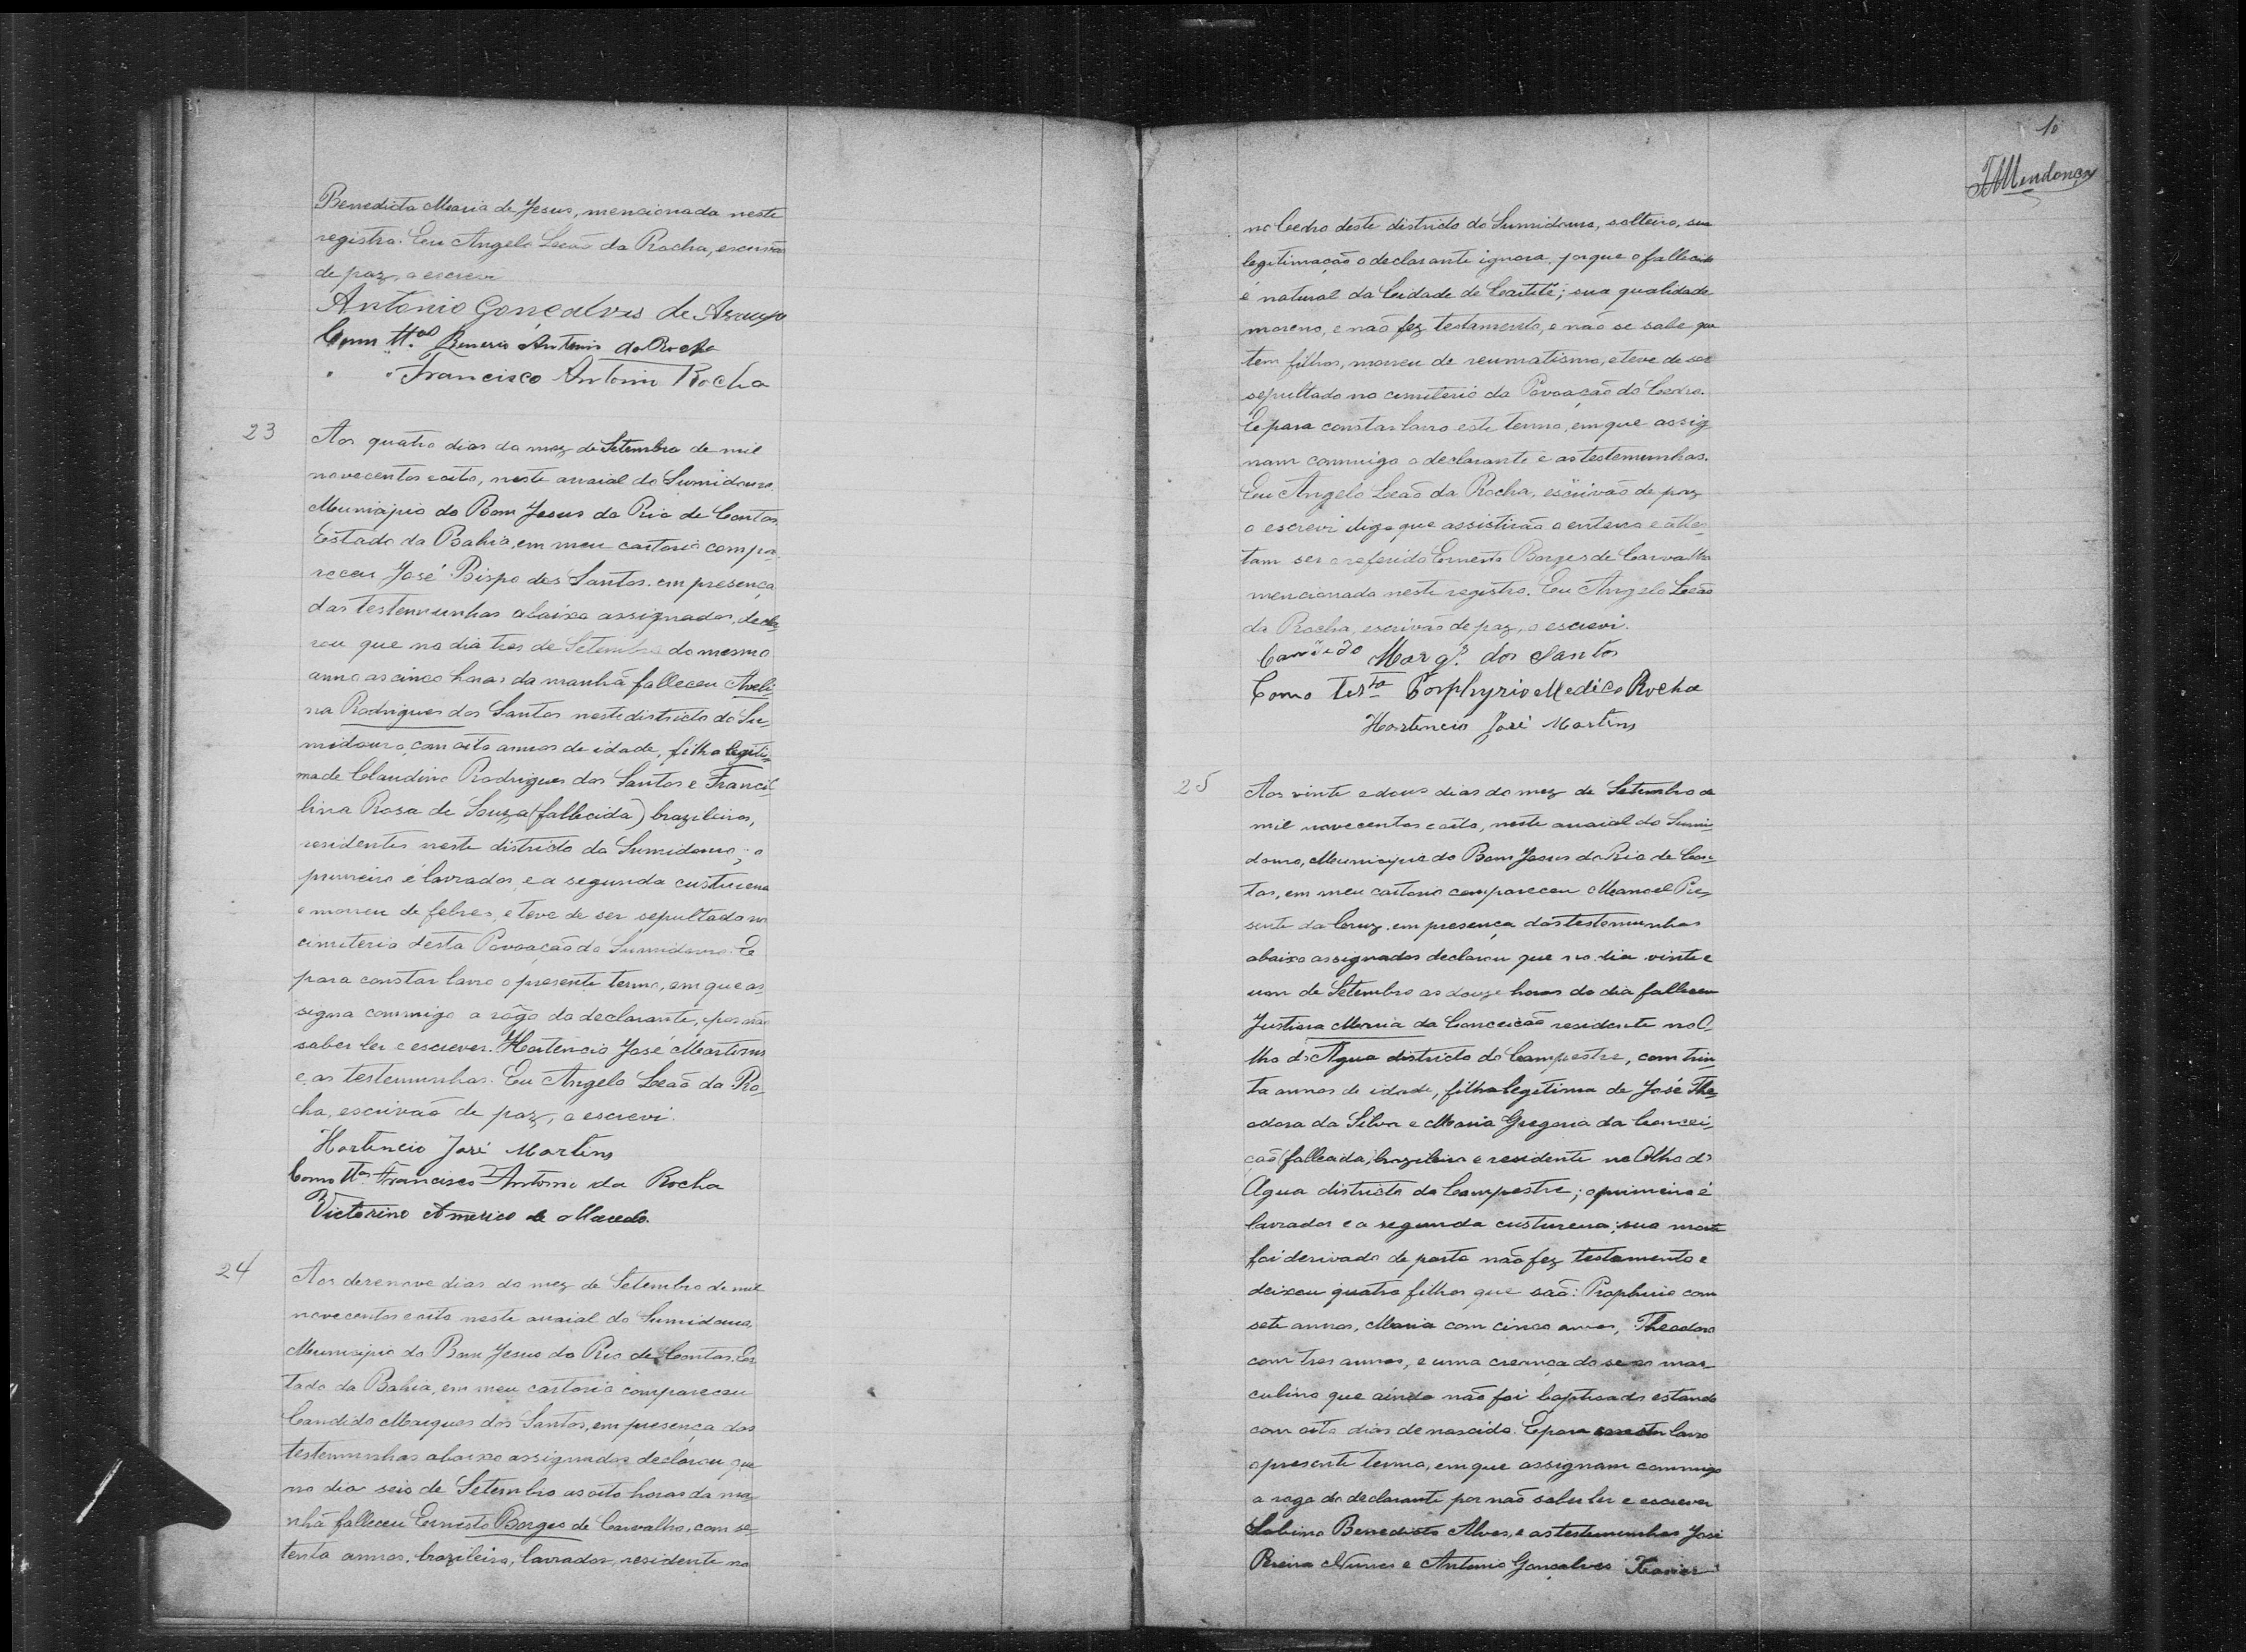 Benedicta Maria de Jesus, mencionada neste
registro. Eu Angelo Leão da Rocha, escrivão
de paz, o escrevi
Antonio Gonçalves de Araujo
Como tt.as Antonio da Rocha
" " Francisco Antonio Rocha
23
Aos quatro dias do mez de Setembro de mil
novecentos e oito, neste arraial do Sumidouro,
Municipio do Bom Jesus do Rio de Contas,
Estado da Bahia, em meu cartorio compa-
receu José Bispo dos Santos, em presença
das testemunhas abaixo assignadas, decla-
rou que no dia tres de Setembro do mesmo
anno as cinco horas da manhã falleceu Aveli-
na Rodrigues dos Santos neste districto do Su-
midouro, com oito annos de idade, filha legiti-
ma de Claudino Rodrigues dos Santos e Franci-
lina Rosa de Souza (fallecida) brazileiros,
residentes neste districto do Sumidouro; o
primeiro é lavrador, e a segunda custureira
e morreu de febres, e teve de ser sepultado no
cimiterio desta Povoação do Sumidouro. E
para constar lavro o presente termo, em que as-
signa commigo a rôgo do declarante, por não
saber ler e escrever. Hortencio José Martins
e as testemunhas. Eu Angelo Leão da Ro-
cha, escrivão de paz, o escrevi.
Hortencio José Martins
Como ttas Francisco Antonio da Rocha
Victorino Americo de Macedo.
24
Aos desenove dias do mez de Setembro de mil
novecentos e oito neste arraial do Sumidouro,
Municipio do Bom Jesus do Rio de Contas, Es-
tado da Bahia, em meu cartorio compareceu
Candido Marques dos Santos, em presença das
testemunhas abaixo assignadas declarou que
no dia seis de Setembro as oito horas da ma-
nhã falleceu Ernesto Borges de Carvalho, com se-
tenta annos, brazileiro, lavrador, residente no
10
Mendonça
no Cedro deste districto do Sumidouro, solteiro, sua
legitimação o declarante ignora, porque o fallecido
é natural da Cidade de Caitité; sua qualidade
moreno, e não fez testamento, e não se sabe que
tem filhos, morreu de reumatismo, e teve de ser
sepultado no cimiterio da Povoação do Cedro.
E para constar lavro este termo, em que assig-
nam commigo o declarante e as testemunhas.
Eu Angelo Leão da Rocha, escrivão de paz
o escrevi digo que assistirão o enterro e attes-
tam ser o referido Ernesto Borges de Carvalho
mencionado neste registro. Eu Angelo Leão
da Rocha, escrivão de paz, o escrevi.
Candido Marqs dos Santos
Como Testa Porphyrio Medico Rocha
Hortencio José Martins
25
Aos vinte e dous dias do mez de Setembro de
mil novecentos e oito, neste arraial do Sumi-
douro, Municipio do Bom Jesus do Rio de Con-
tas, em meu cartorio compareceu Manoel Pre-
sente da Cruz, em presença das testemunhas
abaixo assignadas declarou que no dia vinte e
um de Setembro as douze horas do dia falleceu
Justina Maria da Conceição residente no O-
lho d'Agua districto do Campestre, com trin-
ta annos de idade, filha legitima de José The-
odoro da Silva e Maria Gregoria da Concei-
ção (fallecida) brazileiro e residente no Olho d'
Agua districto do Campestre; o primeiro é
lavrador e a segunda custureira; sua morte
foi derivado de parto não fez testamento e
deixou quatro filhos que são: Prophirio com
sete annos, Maria com cinco annos, Theodoro
com tres annos, e uma creança do sexo mas-
culino que ainda não foi baptisado estando
com oito dias de nascido. E para constar lavro
o presente termo, em que assignam commigo
a rogo do declarante por não saber ler e escrever
Sabino Benedicto Alves, e as testemunhas José
Pereira Nunes e Antonio Gonçalves Xavier